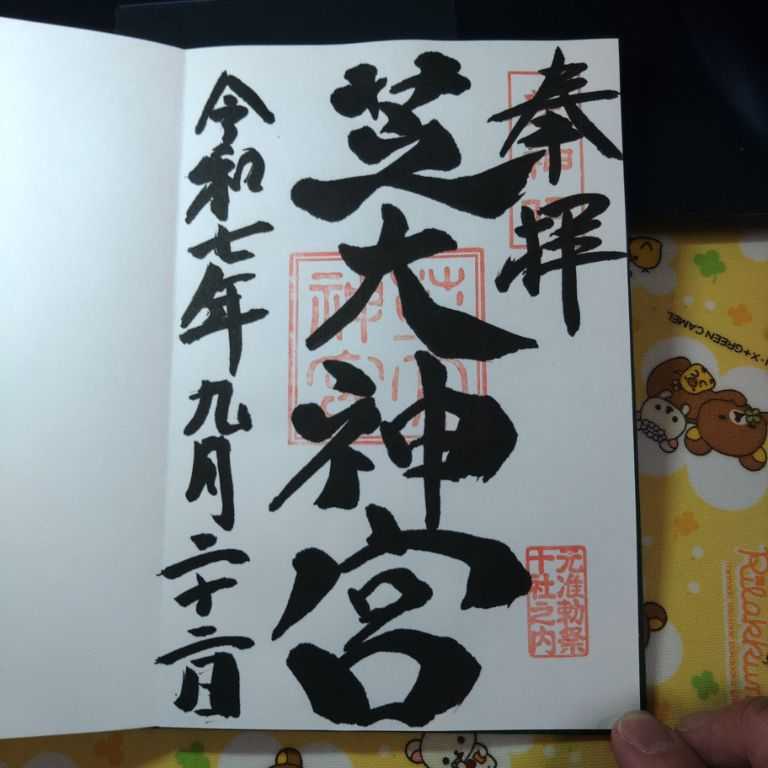 奉拝
芝大神宮
令和七年九月二十二日
元准勅祭
十社之内
芝大
神宮
X+GREEN CAMEL
Rilakkuma